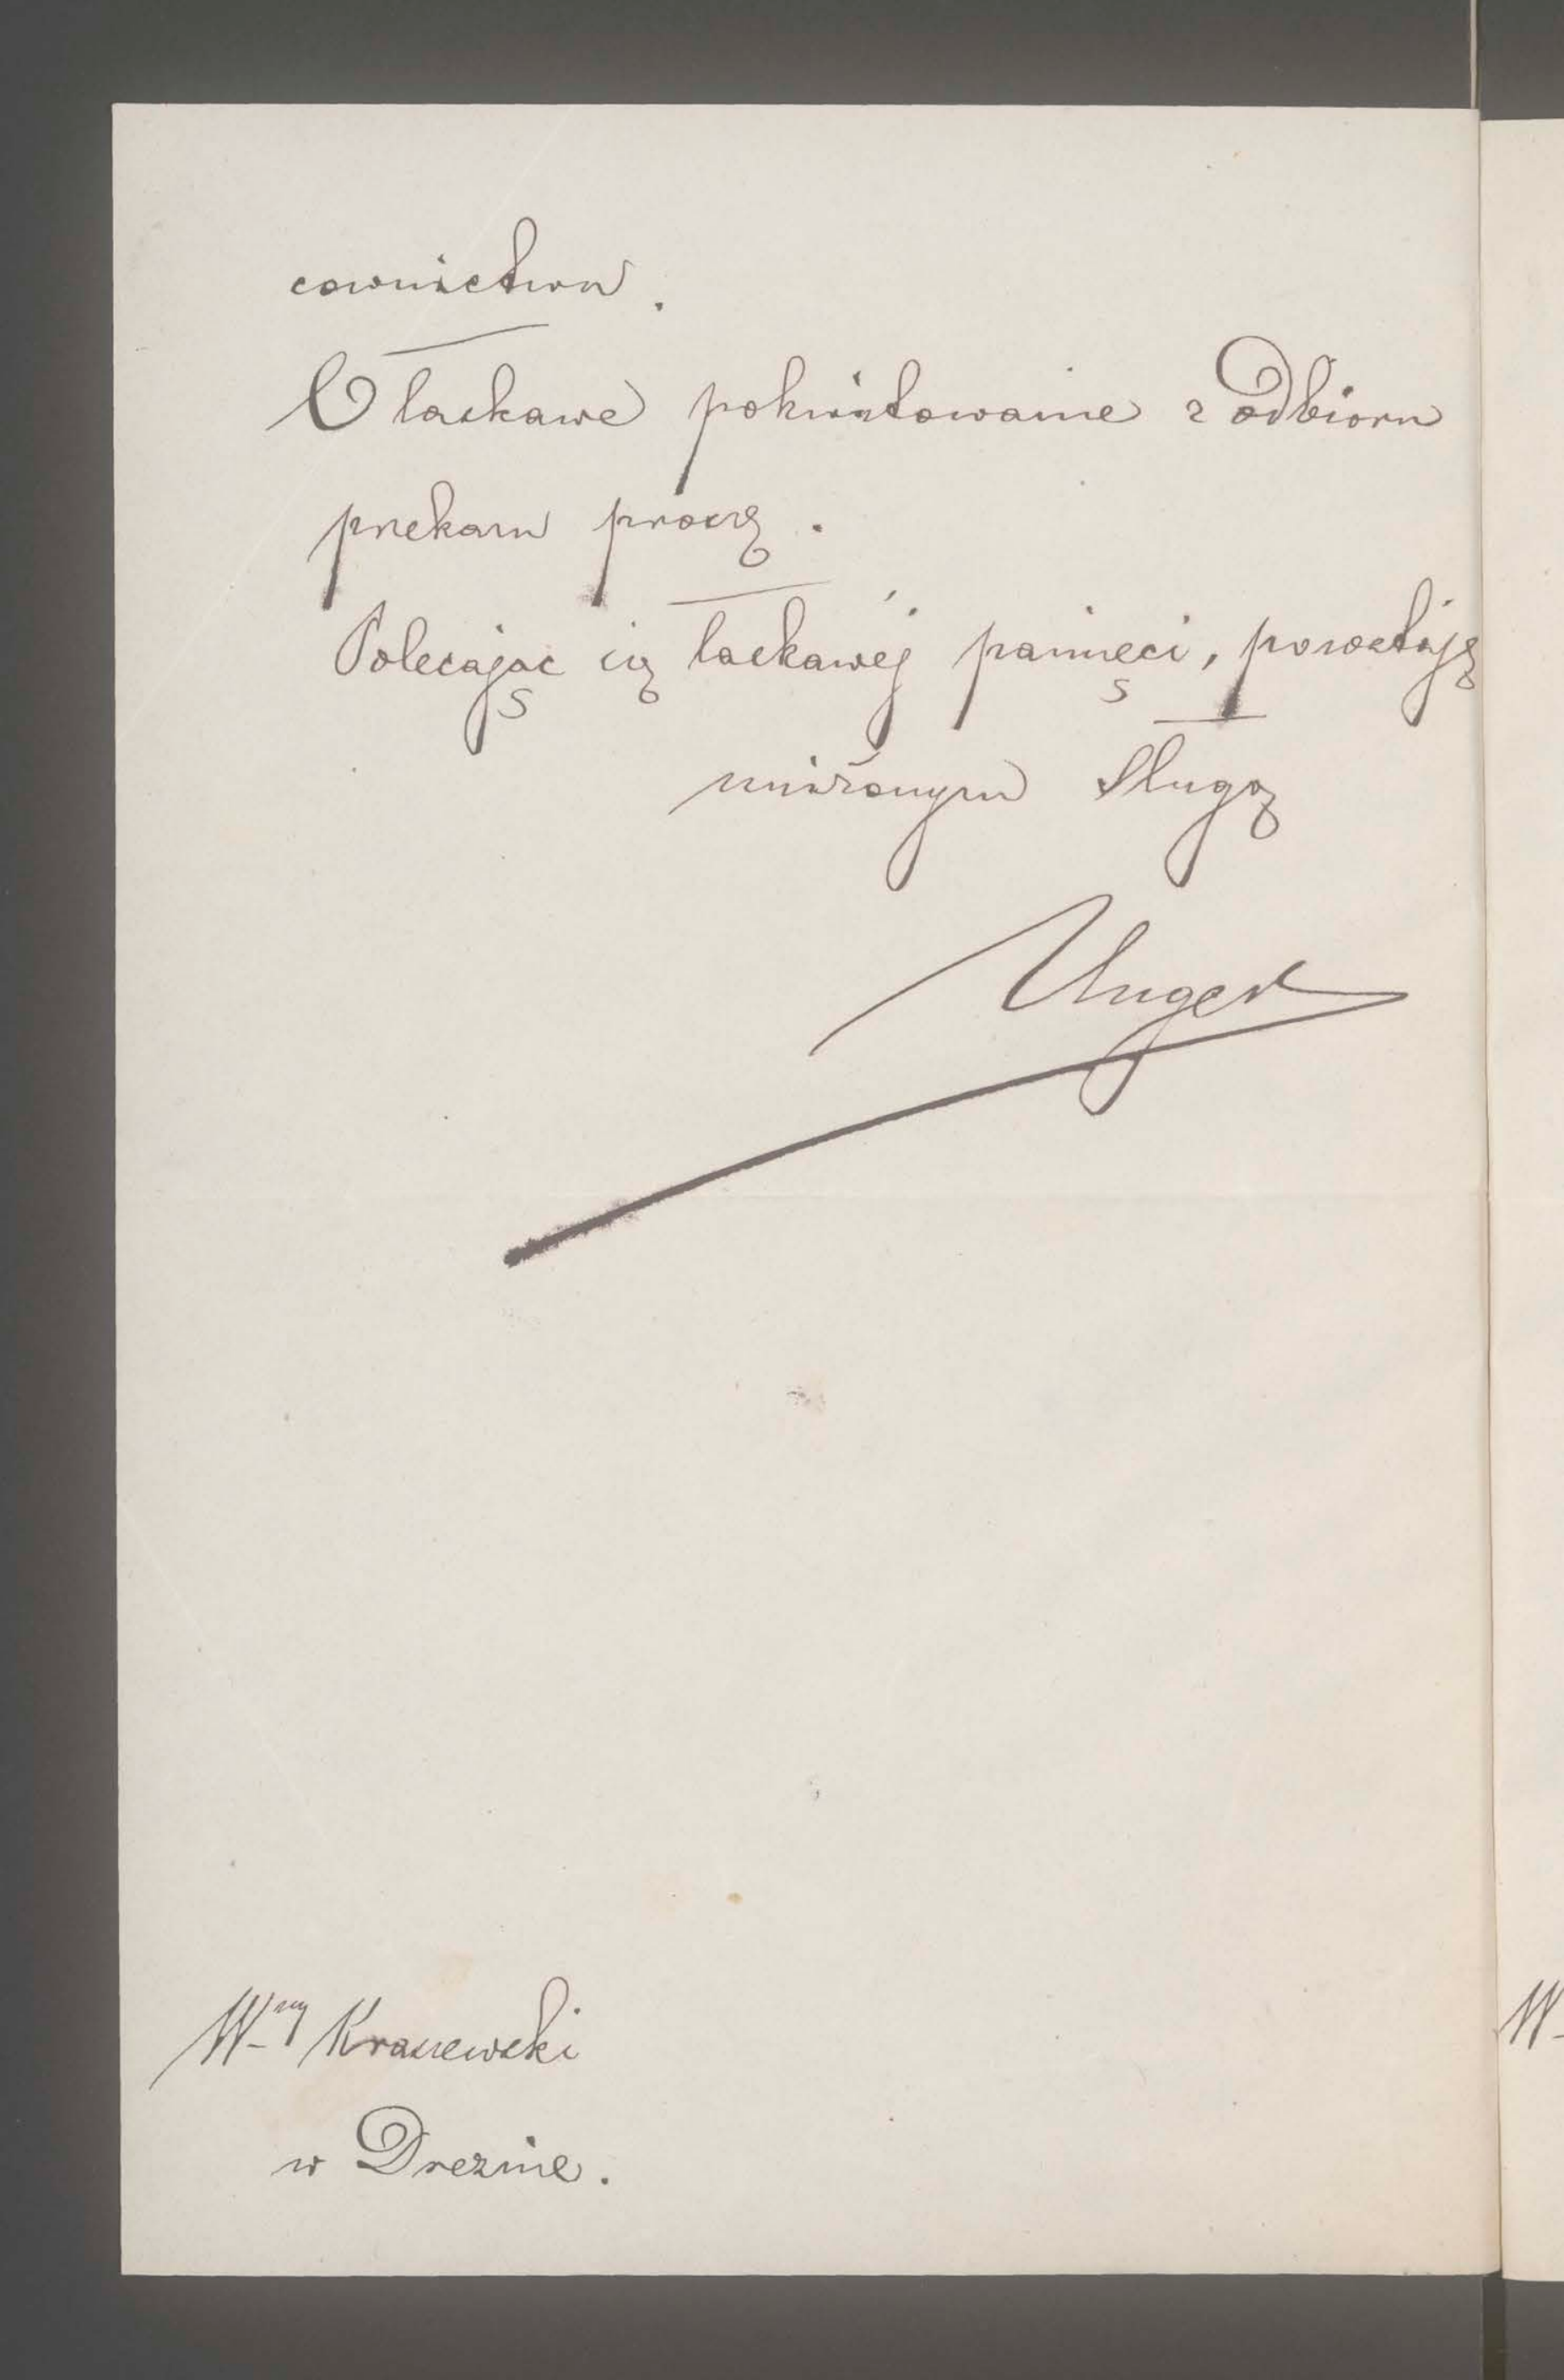 cownictwu.
O łaskawe pokwitowanie z odbioru
przekazu proszę.
Polecając się łaskawéj pamięci, pozostaję
uniżonym sługą
Unger
W-ny Kraszewski
w Dreznie.
W-